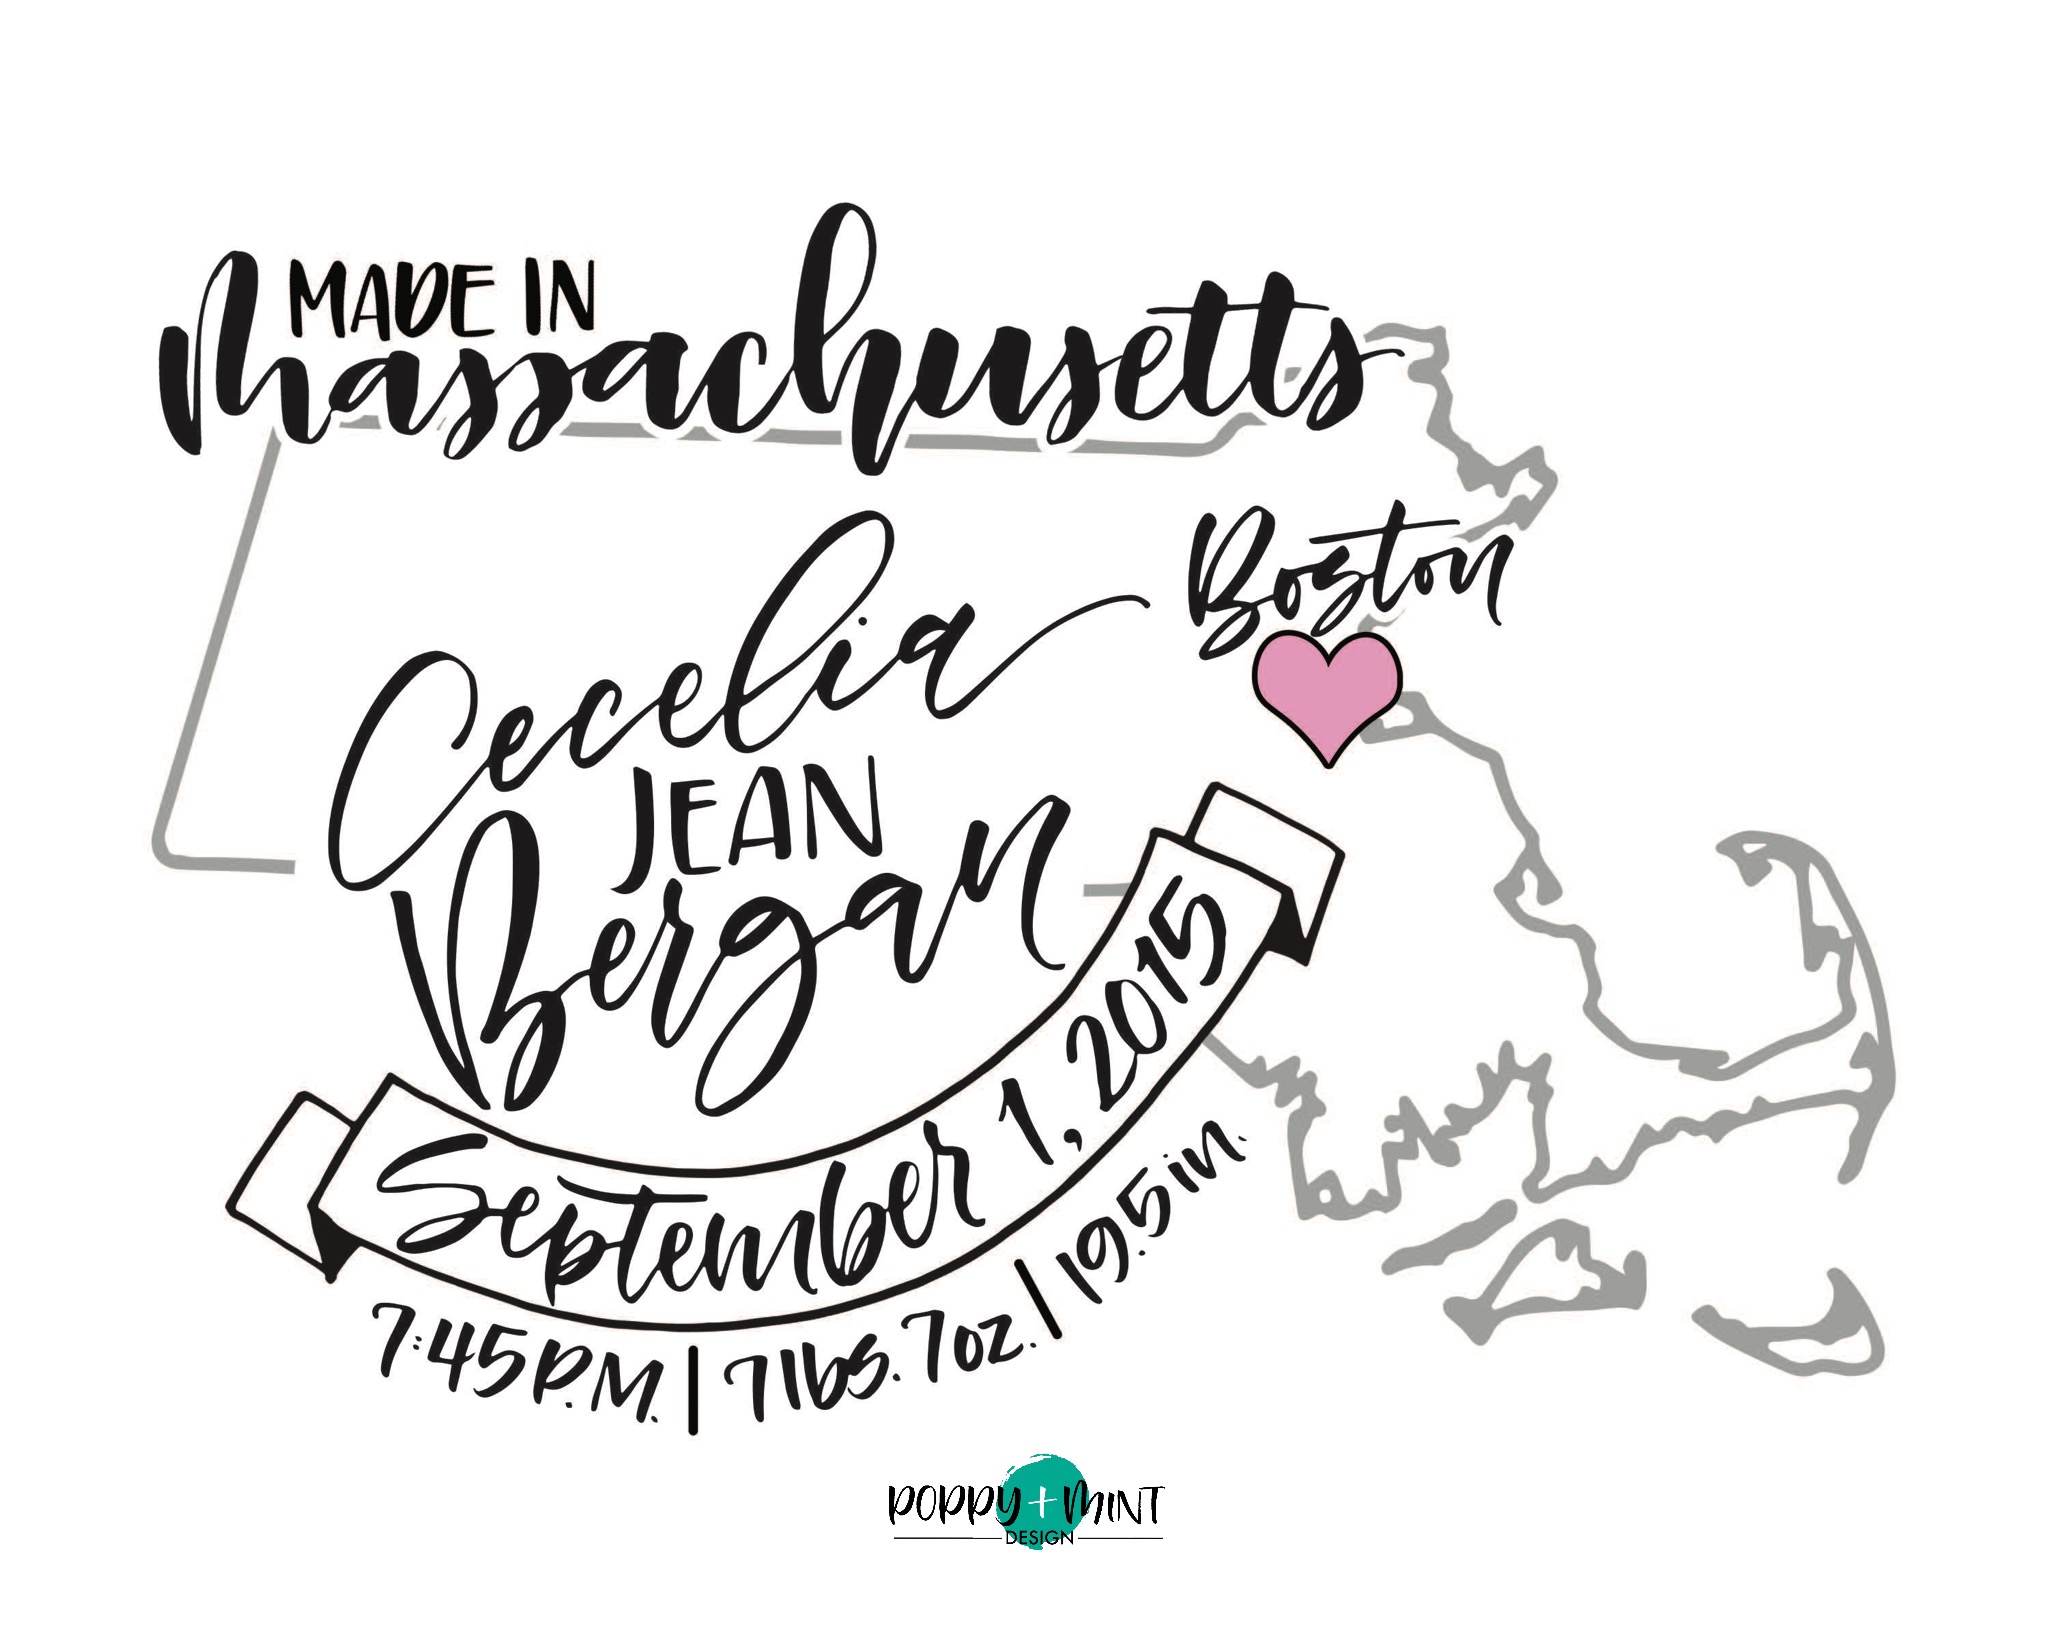 MADE IN
Massachusetts
Boston
Cecelia
JEAN
Bergan
September 1, 2015
7:45 P.M. | 7 lbs. 7 oz. | 19.5 in.
POPPY + MINT
DESIGN